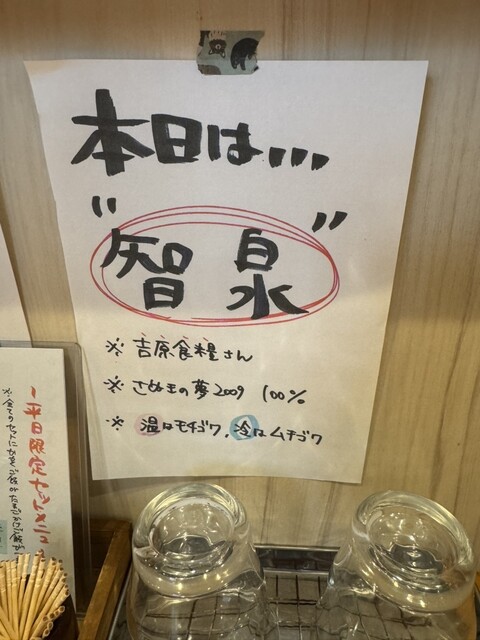 本日は...
"智泉"
※ 吉原食糧さん
※ さぬきの夢2009 100%
※ 温はモチゴワ、冷はムチゴワ
平日限定セットメニュー
※全てのセットに